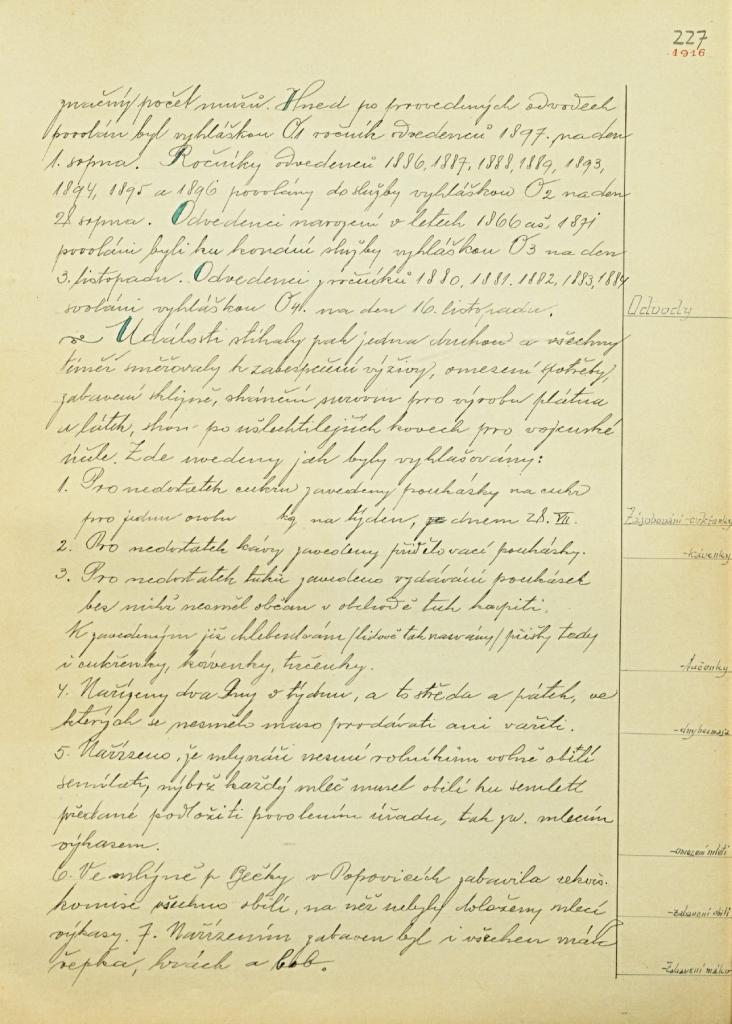 227
1916
značný počet mužů. Hned po provedených odvodech
povolán byl vyhláškou O1 ročník odvedenců 1897 na den
1. srpna. Ročníky odvedenců 1886, 1887, 1888, 1889, 1893,
1894, 1895 a 1896 povolány do služby vyhláškou O2 na den
28 srpna. Odvedenci narození v letech 1866 až 1871
povoláni byli ku konání služby vyhláškou O3 na den
3. listopadu. Odvedenci z ročníků 1880, 1881. 1882, 1883, 1884
svoláni vyhláškou O4. na den 16. listopadu.
Odvody
Události stíhaly pak jedna druhou a všechny
téměř směřovaly k zabezpečení výživy, omezení spotřeby,
zabavení sklizně, shánění surovin pro výrobu plátna
a látek, shon po ušlechtilejších kovech pro vojenské
účele. Zde uvedeny jak byly vyhlašovány:
1. Pro nedostatek cukru zavedeny poukázky na cukr
pro jednu osobu kg na týden, dnem 28. VII.
Zásobování - cukřenky
2. Pro nedostatek kávy zavedeny přídělovací poukázky.
- kávenky
3. Pro nedostatek tuků zavedeno vydávání poukázek
bez nichž nesměl občan v obchodě tuk kupiti.
K zavedeným již chlebenkám /lidově tak nazvány/ přišly tedy
i cukřenky, kávenky, tučenky.
- tučenky
4. Nařízeny dva dny v týdnu, a to středa a pátek, ve
kterých se nesmělo maso prodávati ani vařiti.
- dny bez masa
5. Nařízeno, že mlynáři nesmí rolníkům volně obilí
semílati, nýbrž každý mleč musel obilí ku semletí
předané podložiti povolením úřadu, tak zv. mlecím
výkazem.
- omezení mletí
6. Ve mlýně p. Bečky v Popovicích zabavila rekvis.
komise všechno obilí, na něž nebyly doloženy mlecí
- zabavení obilí
výkazy. 7. Nařízením zabaven byl i všechen mák
řepka, hrách a bob.
- Zabavení máku